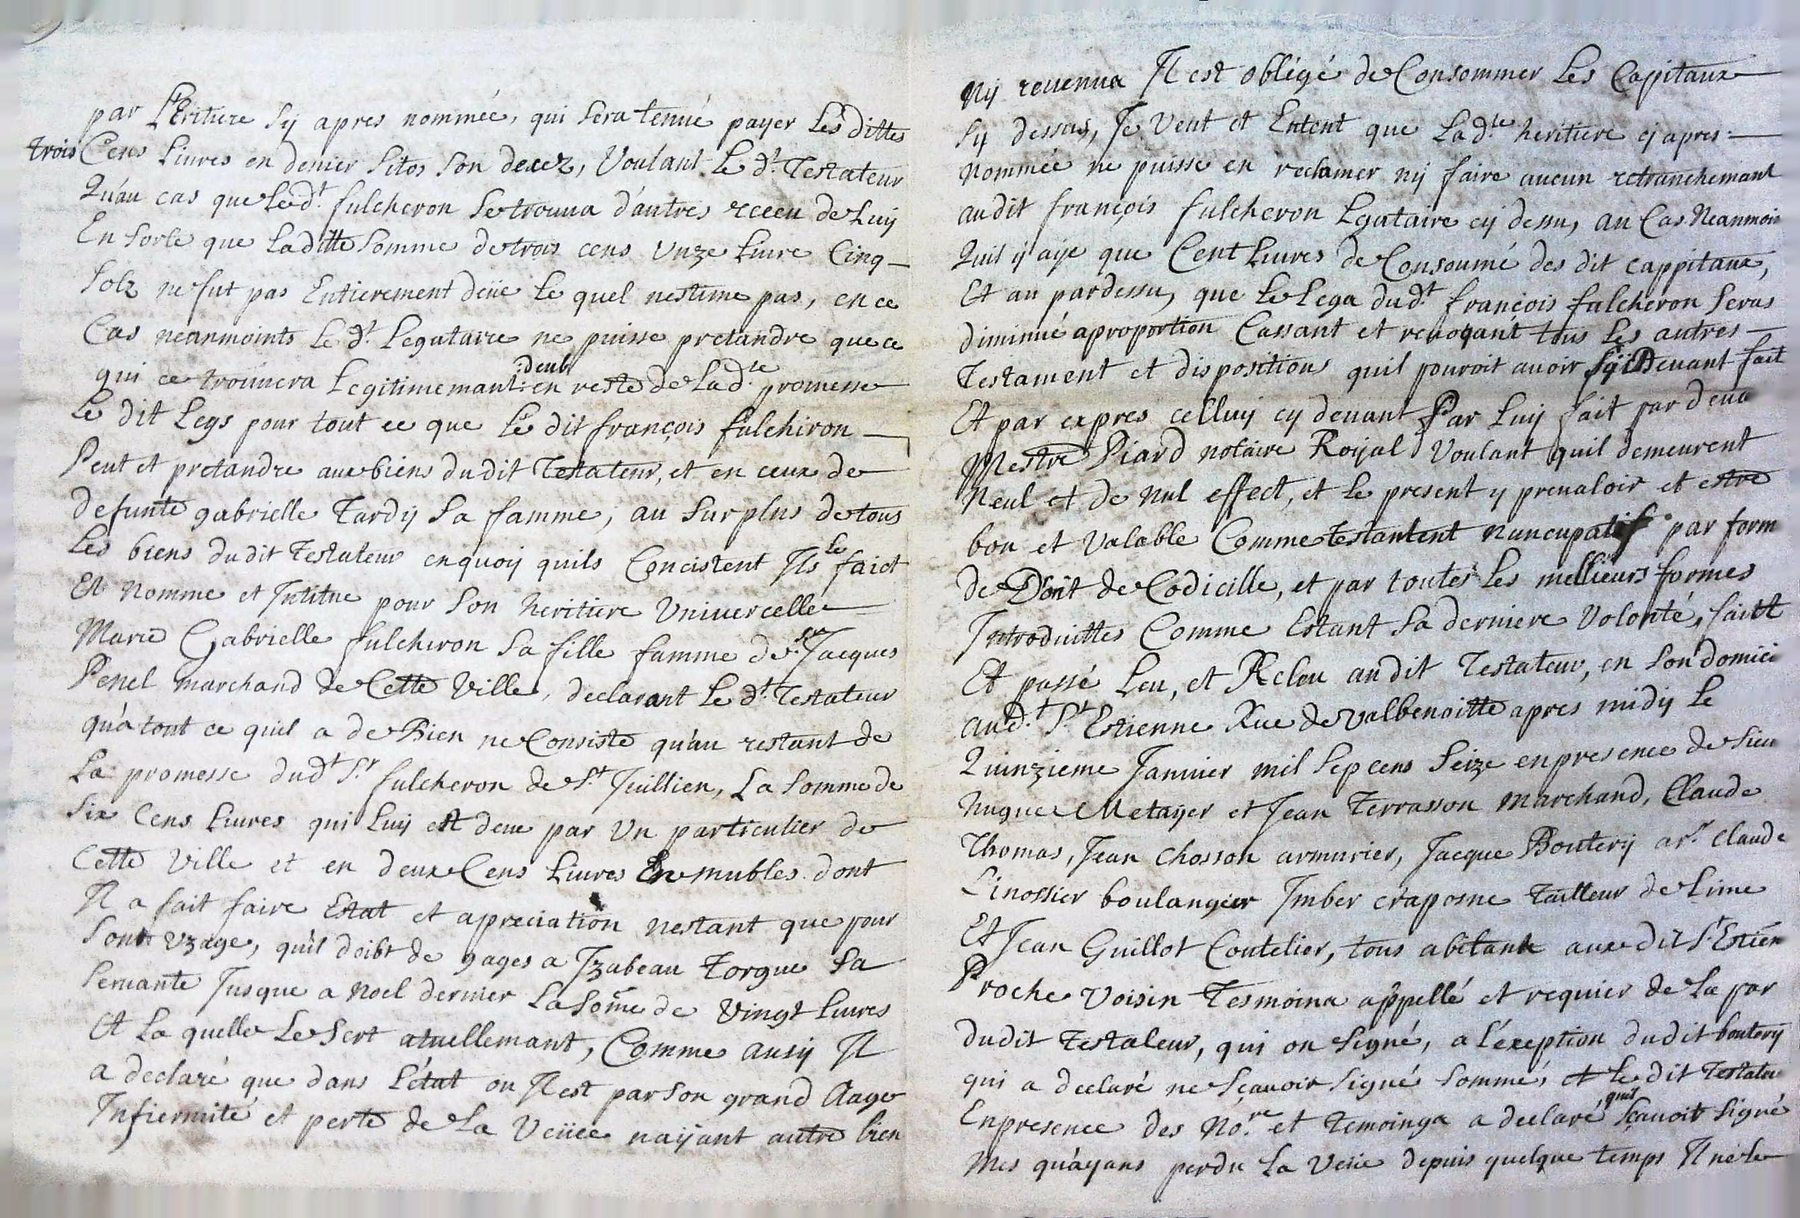 par L'Eritiere sy apres nommée, qui sera tenüe payer Les dittes
trois Cens Livres en denier sitos son decez, Voulant Le d.t Testateur
Qu'au cas que Le d.t fulcheron se trouva d'autres receu de Luy
En sorte que La ditte somme de trois cens Unze Livre Cinq
solz ne fut pas Entierement deüe Le quel nestime pas, en ce
Cas neanmoints Le d.t Legataire ne puisse pretandre que ce
qui ce trouvera Legitimemant deub en reste de La d.te promesse
Le dit Legs pour tout ce que Le dit françois fulchiron
Peut et pretandre aux biens du dit Testateur, et en ceux de
defunte gabrielle Tardy sa famme, au surplus de tous
Les biens du dit Testateur en quoy quils Concistent Ils le faict
Et Nomme et Intitue pour son heritiere Univercelle
Marie Gabrielle fulcheron sa fille famme de sr Jacques
Penel marchand de Cette Ville, declarant Le d.t Testateur
qu'a tout ce quil a de Bien ne Consiste qu'au restant de
La promesse du d.t S.r fulcheron de S.t Juillien, La somme de
six Cens Livres qui Luy est deue par Un particulier de
Cette Ville et en deux Cens Livres En mubles dont
Il a fait faire Estat et apreciation nestant que pour
sont Uzage, qu'il doibt de gages a Izabeau Torgue sa
servante Jusque a Noel dernier La some de Vingt Livres
Et La quelle Le sert atuellemant, Comme ausy Il
a declaré que dans L'état ou Il est par son grand Aage
Infiermité et perte de La Veüee nayant autre bien
Ny revenua Il est obligé de Consommer Les Capitaux
sy dessus, Je Veut et Entent que La d.te heritiere cy apres
Nommée ne puisse en reclamer ny faire aucun retranchemant
au dit françois fulcheron Lgataire cy dessu, au Cas Neanmoin
Quil y aye que Cent Livres de Consoumé des dit cappitaux,
Et au par dessu, que Le Lega du d.t françois fulcheron seras
diminué a proportion Cassant et revoquant tous Les autres
Testament et dispositions quil pouroit avoir sy Devant fait
Et par expres celluy cy devant Par Luy fait par deva
Mestre Piard notaire Royal Voulant quil demeurent
Neul et de nul effect, et Le present y prevaloir et estre
bon et Valable Comme testantent nuncupatif par form
de Doit de Codicille, et par toutes Les mellieurs formes
Introduittes Comme Estant sa derniere Volonté, faitt
Et passé Leu, et Releu au dit Testateur, en son domici
au d.t S.t Estienne Rue de Valbenoitte apres midy Le
Quinzieme Janvier mil sep cens seize en presence de sieu
hugue Metayer et Jean Terrasson marchand, Claude
Thomas, Jean Chosson armurier, Jacque Boutery ar.r Claude
Linossier boulangier Imber craposne tailleur de Lime
Et Jean Guillot Coutelier, tous abitant aux dit S.t Estien
Proche Voisin Tesmoina appellé et requier de La par
du dit Testateur, qui on signé, a L'exeption du dit boutery
qui a declaré ne sçavoir signé sommé, et Le dit Testate
En presence des No.re et temoinga a declaré quil sçavoit signé
Mes qu'ayans perdu La Veüe depuis quelque temps Il ne Le